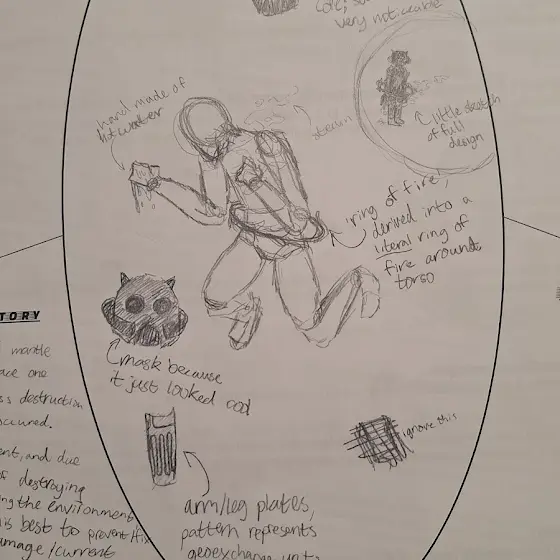 very noticeable
hand made of
hot water
steam
little sketch
of full
design
'ring of fire',
derived into a
literal ring of
fire around
torso
TORY
mantle
ace one
ss destruction
occured.
ent, and due
of destroying
ing the environment
is best to prevent/fix
amage/current
mask because
it just looked cool
ignore this
arm/leg plates,
pattern represents
geoexchange